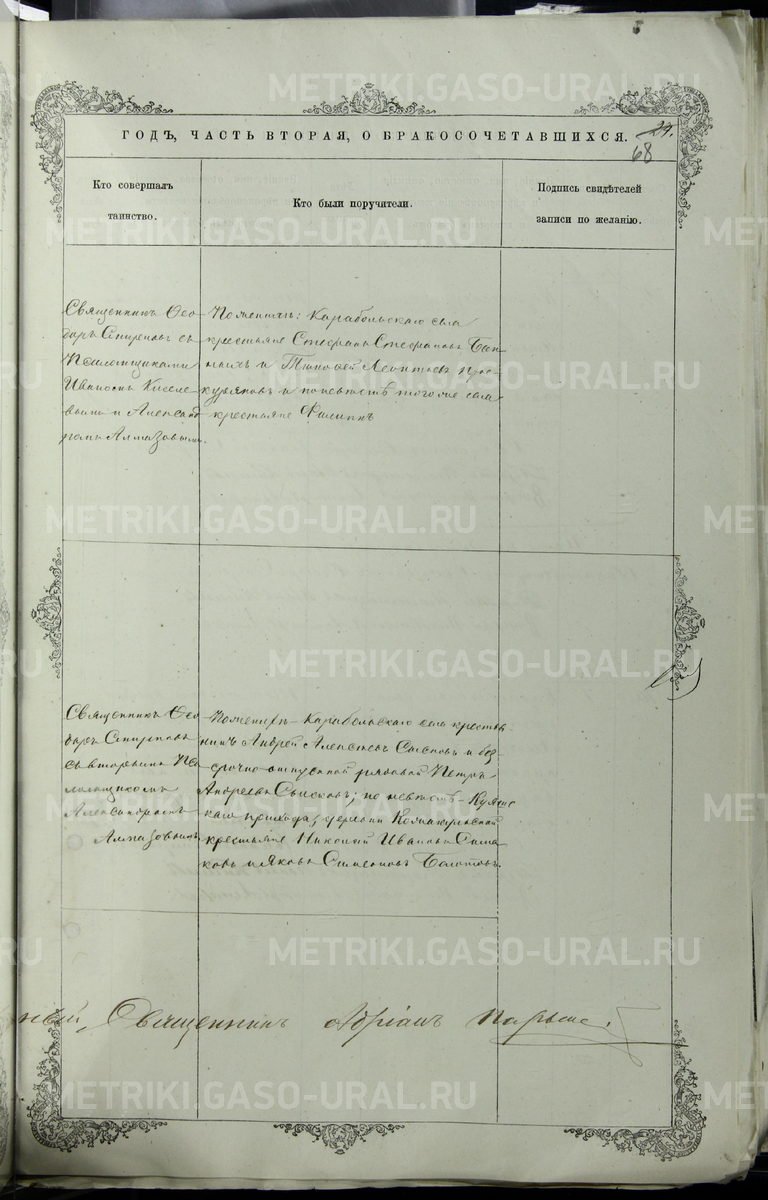 METRIKI.GASO-URAL.RU
ГОДЪ, ЧАСТЬ ВТОРАЯ, О БРАКОСОЧЕТАВШИХСЯ.
29.
68
Кто совершалъ
таинство.
Кто были поручители.
Подпись свидѣтелей
записи по желанію.
Священникъ Ѳео
доръ Спиринъ съ
Псаломщиками
Иваномъ Киселе
вымъ и Александ
ромъ Алмазовымъ.
По женихѣ: Карабольскаго села
крестьяне Стефанъ Стефановъ
и Тимофей Леонтьевъ Прос
куряковъ и по невѣстѣ того же села
крестьяне Филиппъ
Священникъ Ѳео
доръ Спиринъ
съ вторымъ Пса
ломщикомъ
Александромъ
Алмазовымъ
По женихѣ Карабольскаго села крестья
нинъ Андрей Алексѣевъ и без
срочно отпускной рядовой Петръ
Андреевъ; по невѣстѣ Куяш
скаго прихода, деревни
крестьяне Николай Ивановъ
и Яковъ Симеоновъ Болотовъ.
Священникъ Адріанъ